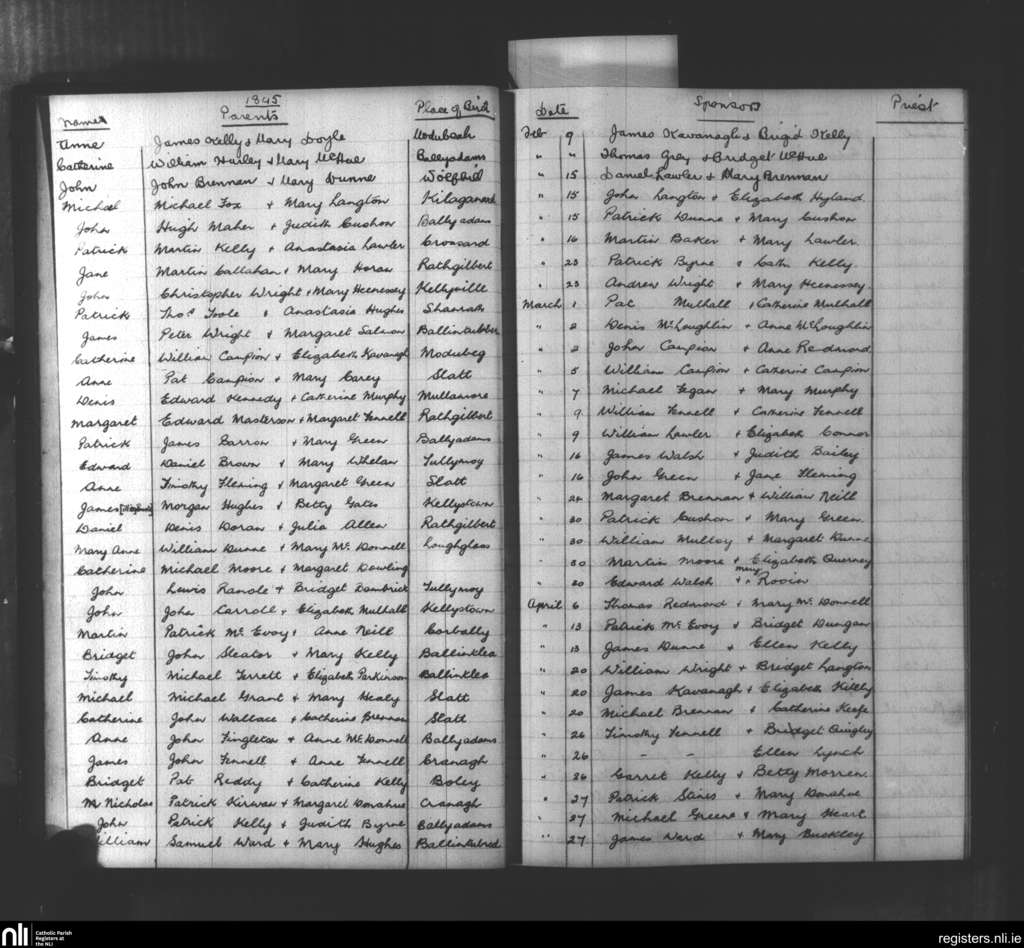 1845
Names Parents Place of Birth
Anne James Kelly & Mary Doyle Modubeah
Catherine William Hurley & Mary McHue Ballyadams
John John Brennan & Mary Dunne
Michael Michael Fox & Mary Langton
John Hugh Maher & Judith Cushon Ballyadams
Patrick Martin Kelly & Anastasia Lawler Crossard
Jane Martin Callahan & Mary Horan Rathgilbert
John Christopher Wright & Mary Heenessey Kellyville
Patrick Thos. Toole & Anastasia Hughes Shanrath
James Peter Wright & Margaret Salmon Ballintubber
Catherine William Campion & Elizabeth Kavanagh Modubeg
Anne Pat Campion & Mary Carey Slatt
Denis Edward Kennedy & Catherine Murphy Mullamore
Margaret Edward Masterson & Margaret Fennell Rathgilbert
Patrick James Barron & Mary Green Ballyadams
Edward Daniel Brown & Mary Whelan Tullymoy
Anne Timothy Fleming & Margaret Green Slatt
James Morgan Hughes & Betty Gates Kellystown
Daniel Denis Doran & Julia Allen Rathgilbert
Mary Anne William Dunne & Mary Mc Donnell Loughglass
Catherine Michael Moore & Margaret Dowling
John Lewis Ranole & Bridget Dambrick Tullymoy
John John Carroll & Elizabeth Mulhall Kellystown
Martin Patrick Mc Evoy & Anne Neill Corbally
Bridget John Sleator & Mary Kelly Ballinklea
Timothy Michael Ferrett & Elizabeth Parkinson Ballinklea
Michael Michael Grant & Mary Healy Slatt
Catherine John Wallace & Catherine Brennan Slatt
Anne John Fingleton & Anne McDonnell Ballyadams
James John Fennell & Anne Fennell Cranagh
Bridget Pat Reddy & Catherine Kelly Boley
Nicholas Patrick Kirwan & Margaret Donahue Cranagh
John Patrick Kelly & Judith Byrne Ballyadams
William Samuel Ward & Mary Hughes Ballintubred
Date Sponsors Priest
Feb 9 James Kavanagh & Brigid Kelly
" " Thomas Grey & Bridget McHue
" 15 Daniel Lawler & Mary Brennan
" 15 John Langton & Elizabeth Hyland
" 15 Patrick Dunne & Mary Cushon
" 16 Martin Baker & Mary Lawler
" 23 Patrick Byrne & Cath. Kelly
" 23 Andrew Wright & Mary Heenessey
March 1 Pat Mulhall & Catherine Mulhall
" 2 Denis McLoughlin & Anne McLoughlin
" 2 John Campion & Anne Redmond
" 5 William Campion & Catherine Campion
" 7 Michael Fegan & Mary Murphy
" 9 William Fennell & Catherine Fennell
" 9 William Lawler & Elizabeth Connor
" 16 James Walsh & Judith Bailey
" 16 John Green & Jane Fleming
" 24 Margaret Brennan & William Neill
" 30 Patrick Cushon & Mary Green
" 30 William Mulloy & Margaret Dunne
" 30 Martin Moore & Elizabeth Querney
" 30 Edward Walsh & Mary Rovin
April 6 Thomas Redmond & Mary Mc Donnell
" 13 Patrick Mc Evoy & Bridget Dungan
" 13 James Dunne & Ellen Kelly
" 20 William Wright & Bridget Langton
" 20 James Kavanagh & Elizabeth Kelly
" 20 Michael Brennan & Catherine Keefe
" 26 Timothy Fennell & Bridget Quigley
" 26 - - Ellen Lynch
" 26 Garret Kelly & Betty Morren
" 27 Patrick Stines & Mary Donahue
" 27 Michael Greene & Mary Heart
" 27 James Ward & Mary Buckley
nli
Catholic Parish
Registers at
the NLI
registers.nli.ie